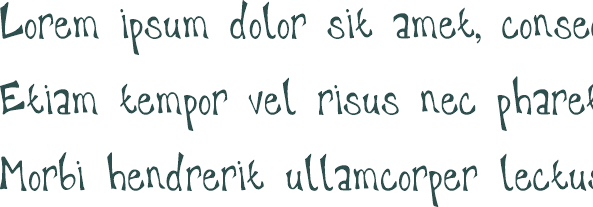 Lorem ipsum dolor sit amet, consec
Etiam tempor vel risus nec pharet
Morbi hendrerit ullamcorper lectus